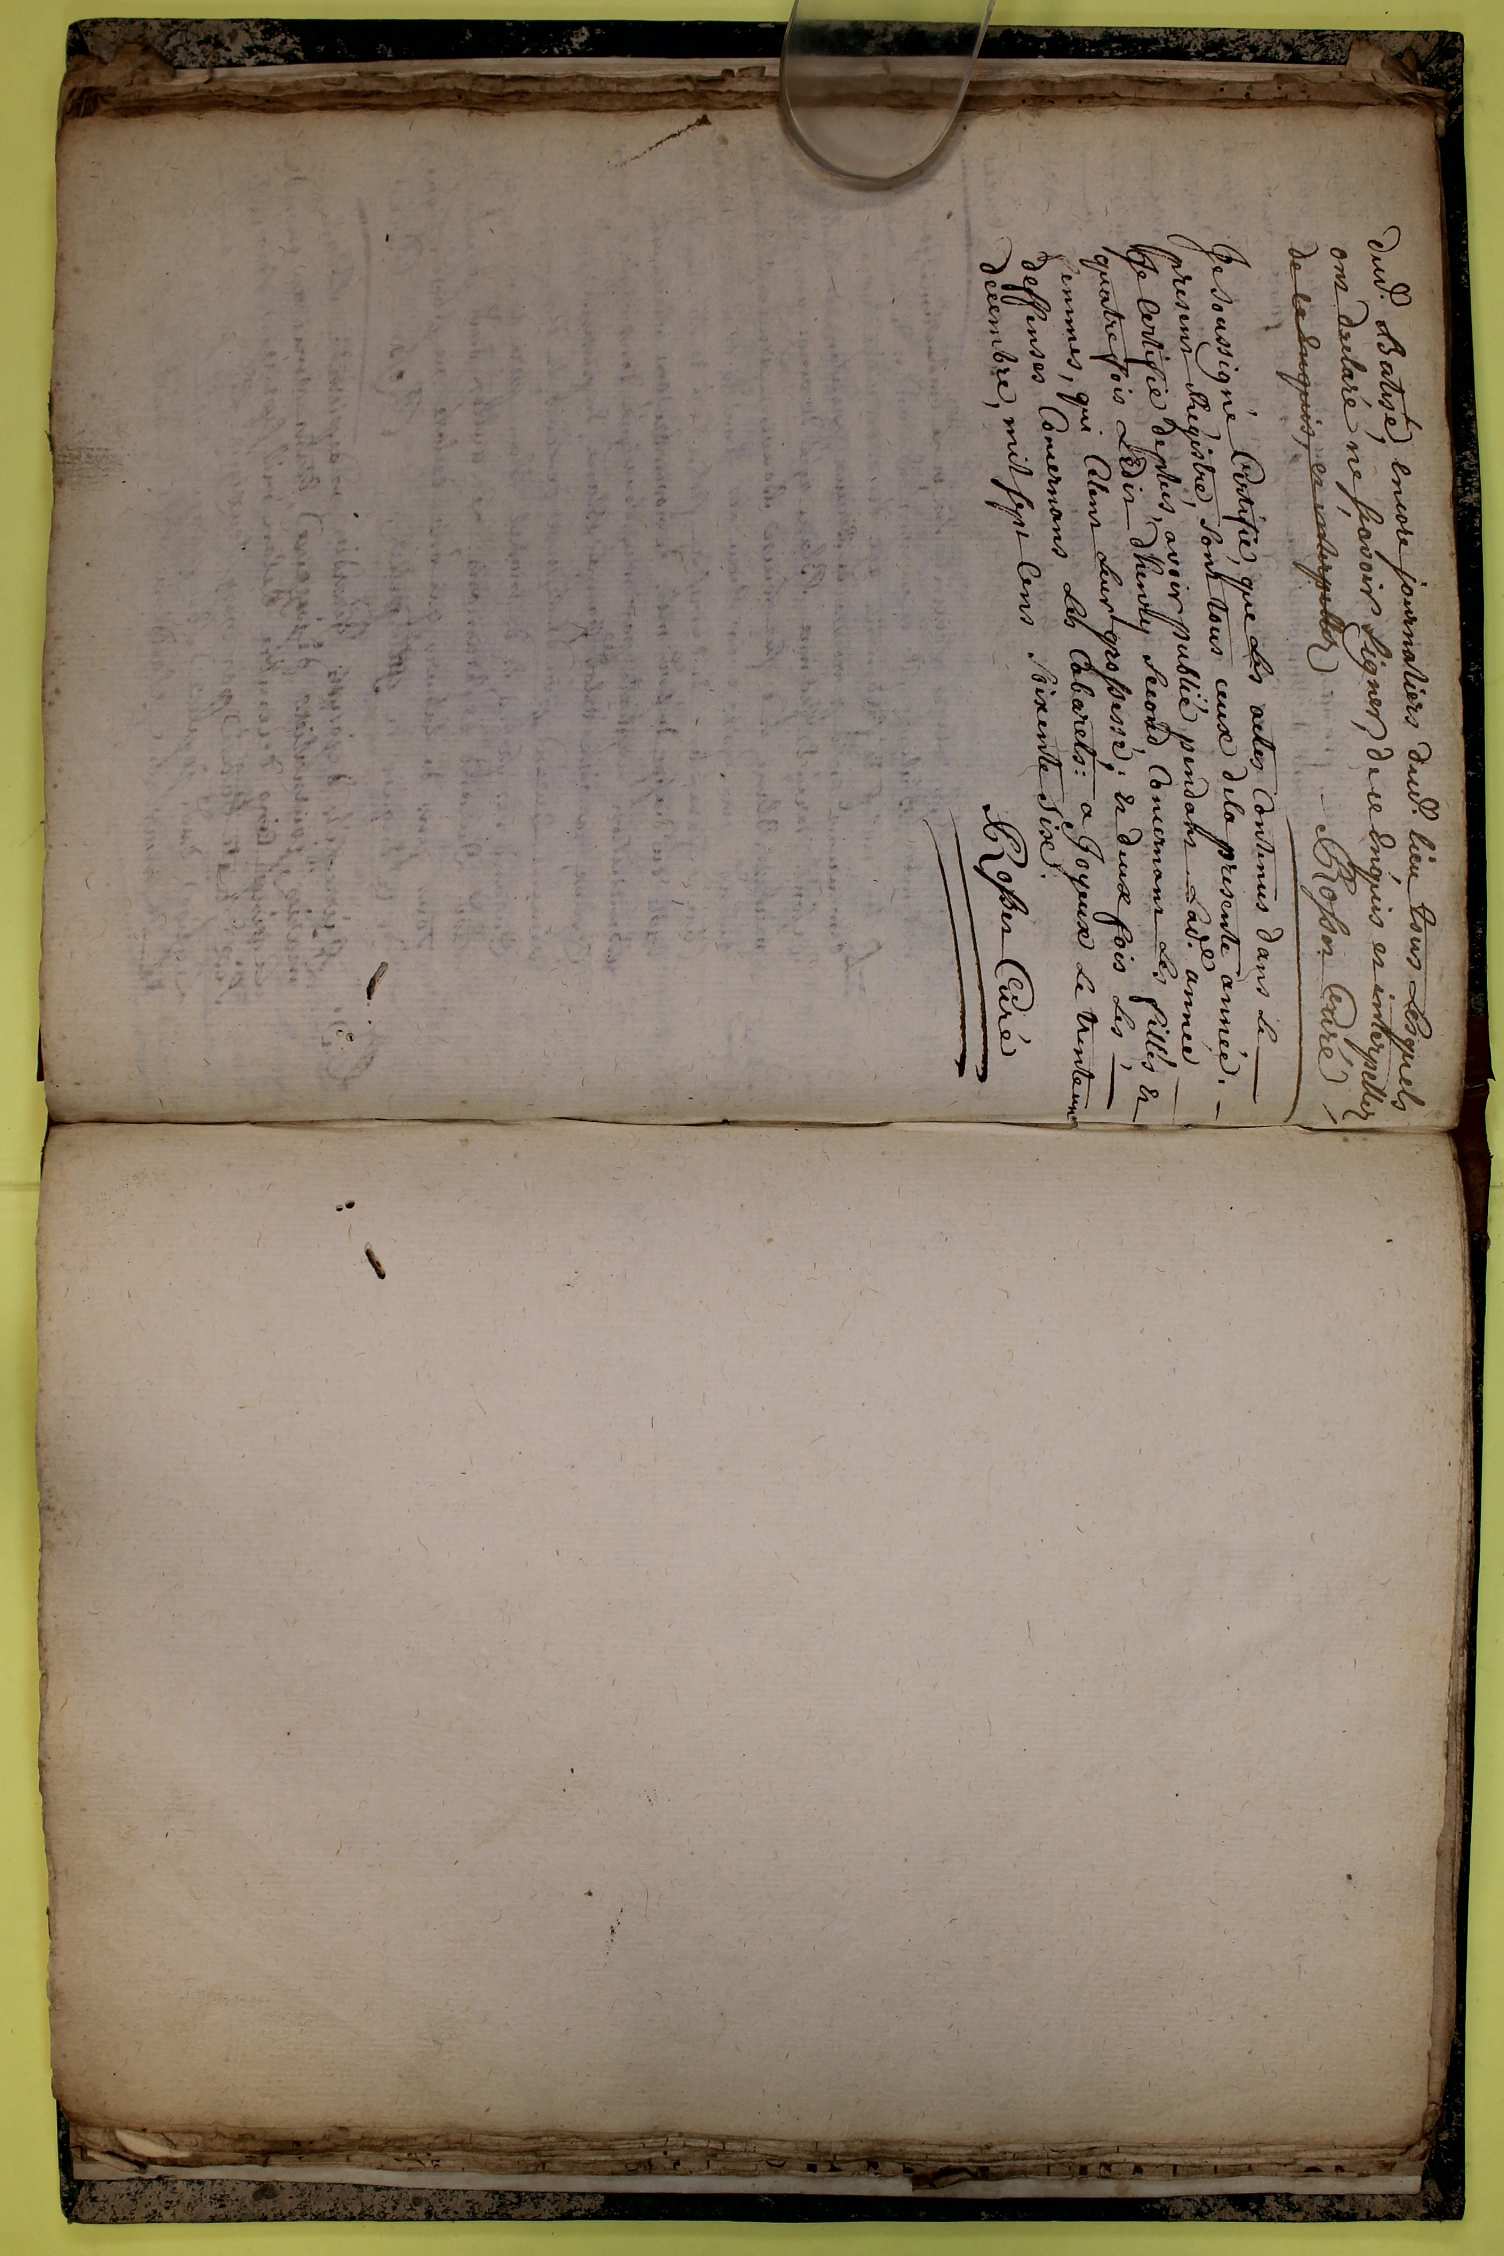 dud. Batisé, encore journaliers dud. lieu tous Lesquels
ont declaré ne sçavoir signer, de ce enquis et interpellez
de ce enquis, et interpellez
Rossin Curé
Je soussigné Certifie, que Les actes Contenus dans Le
present Registre, sont tous ceux de la presente année.
Je certifie de plus, avoir publié pendant Lad.e année
quatre fois L'Edit d'henry second Concernant Les filles &
femmes, qui Celent Leur grossesse; & deux fois Les
deffenses Concernans Les Cabarets: a Joyeux Le trente un
decembre, mil sept cens soixente sixe.
Rossin Curé